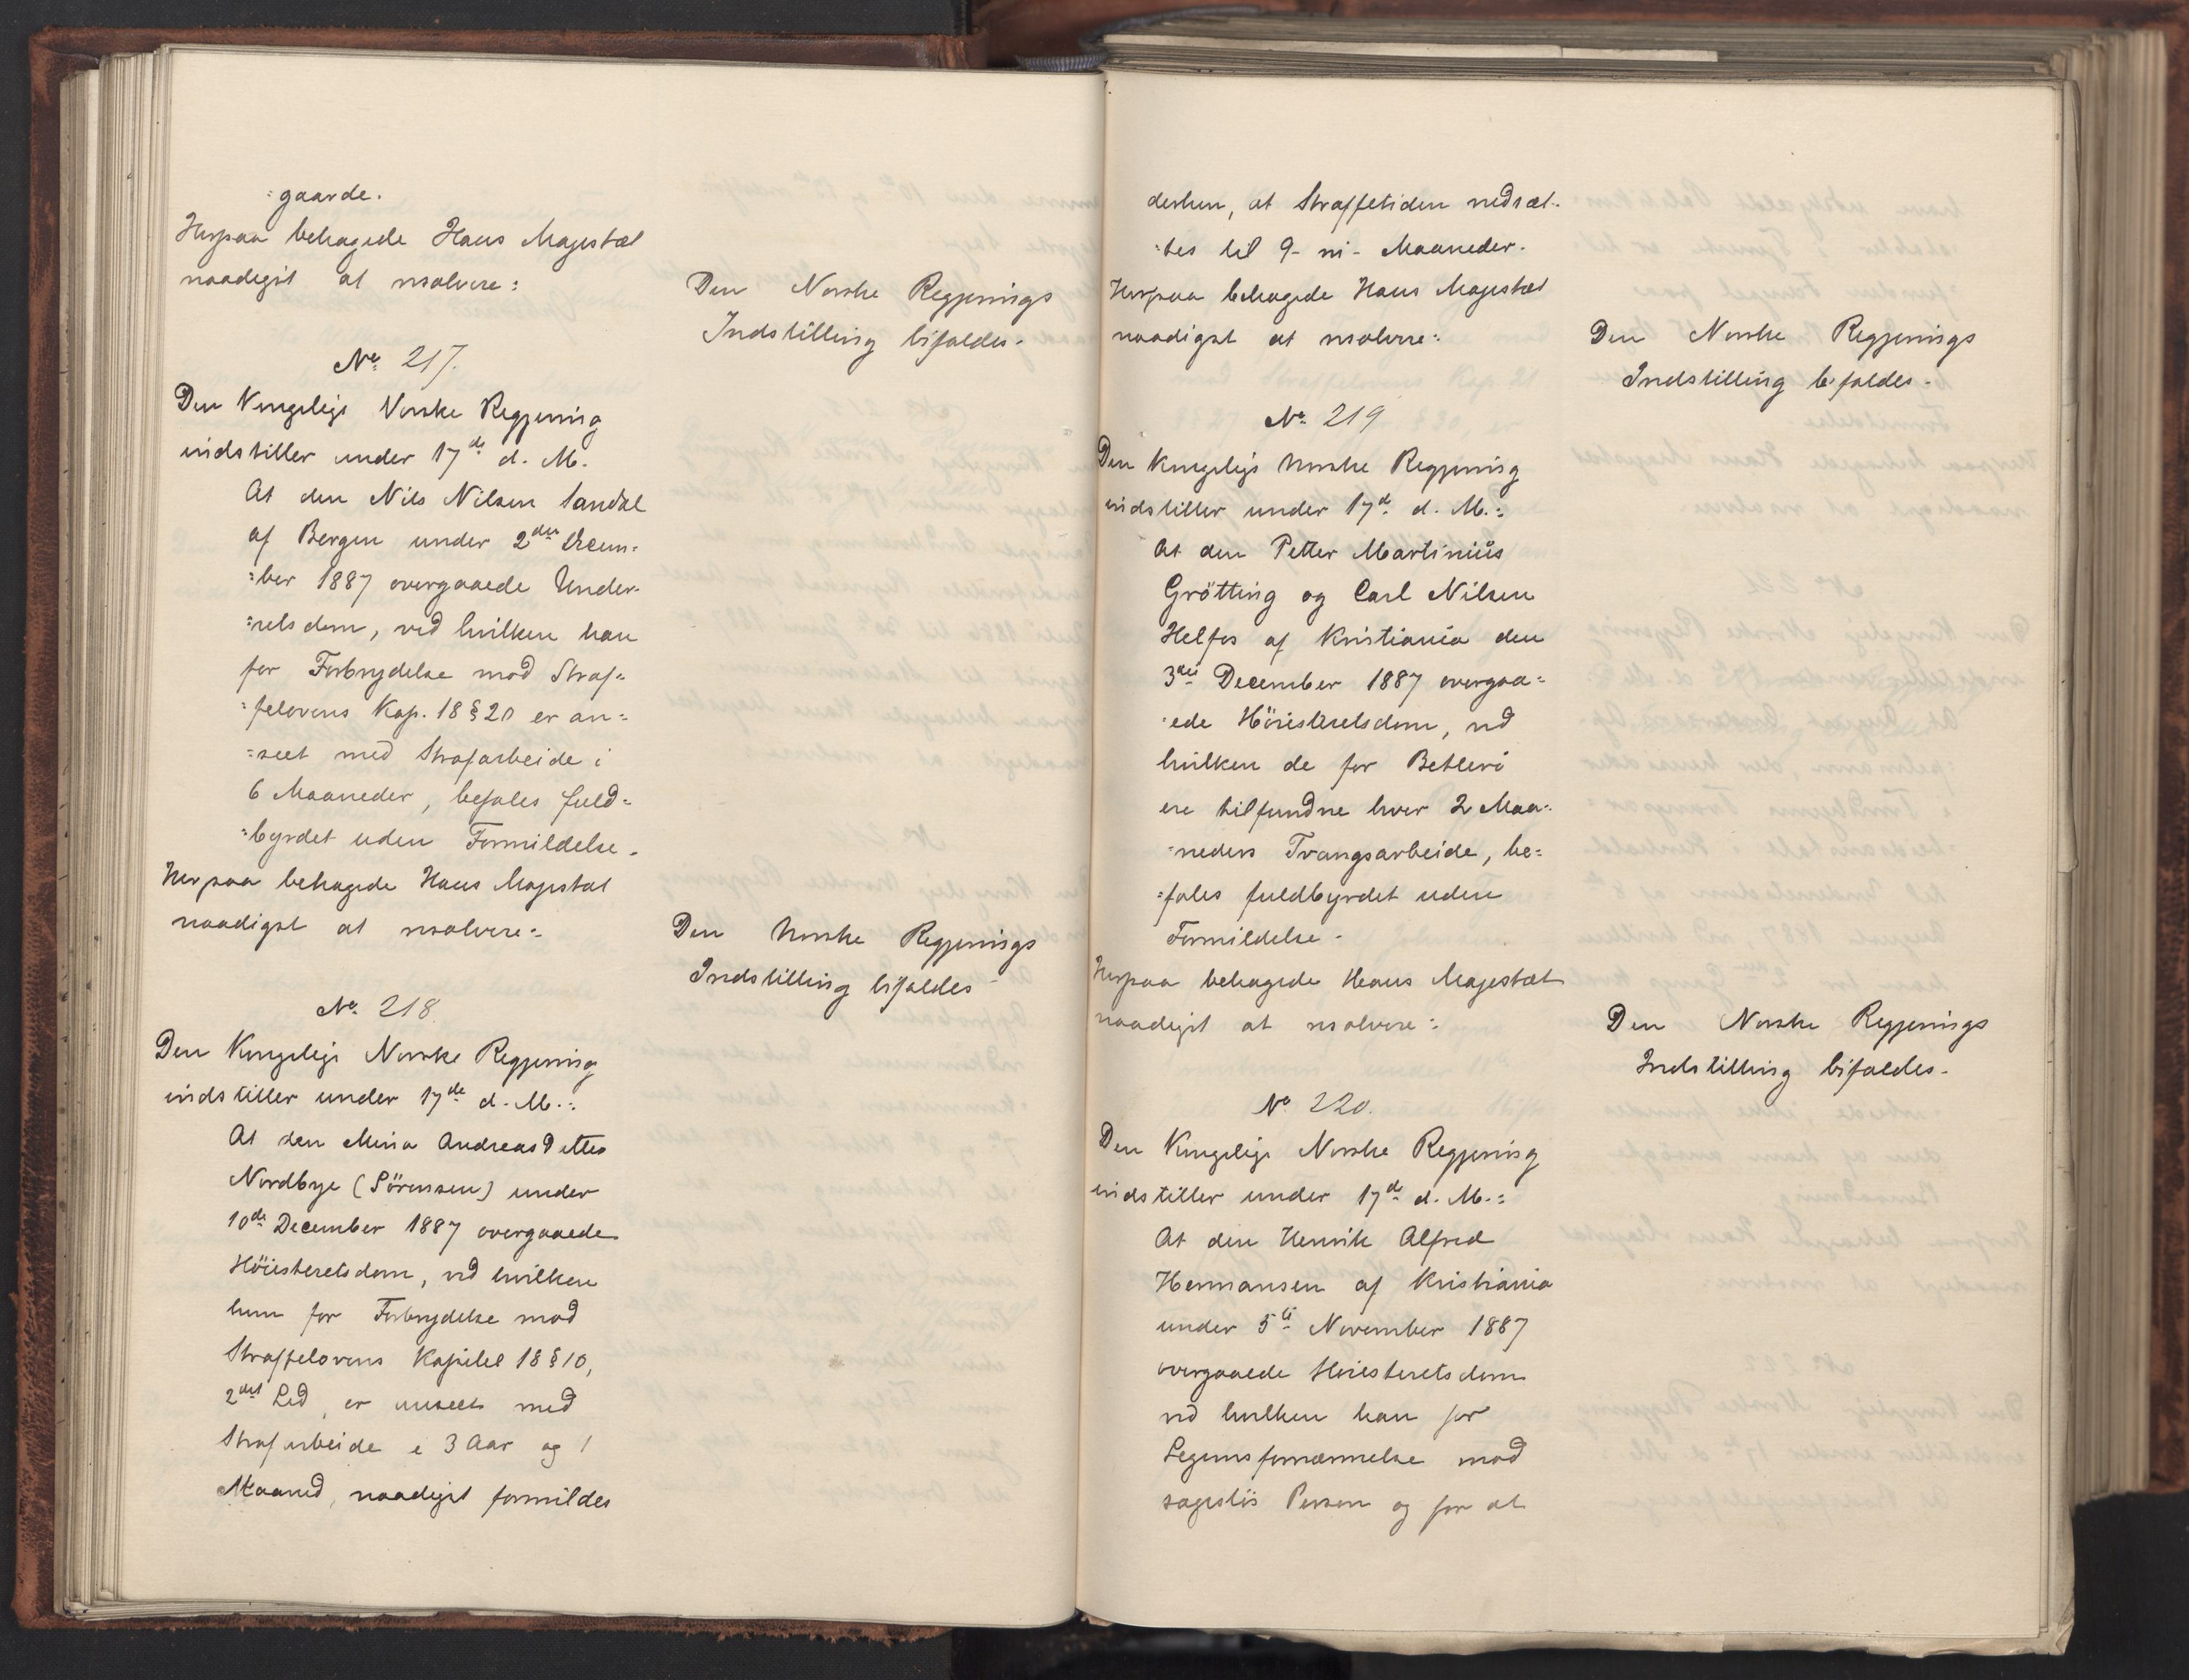 :gaarde.
Herpaa behagede Hans Majestæt
naadigst at resolvere:
Den Norske Regjerings
Indstilling bifaldes.
No. 217.
Den Kongelige Norske Regjering
indstiller under 17de d. M.
At den Nils Nilsen Sandal
af Bergen under 2den Decem:
:ber 1887 overgaaede Under:
:retsdom, ved hvilken han
for Forbrydelse mod Straf:
:felovens Kap. 18 § 20 er an:
:seet med Strafarbeide i
6 Maaneder, befales fuld:
:byrdet uden Formildelse.
Herpaa behagede Hans Majestæt
naadigst at resolvere:
Den Norske Regjerings
Indstilling bifaldes
No. 218.
Den Kongelige Norske Regjering
indstiller under 17de d. M.:
At den Mina Andreas Dtter
Nordbye (Sörensen) under
10de December 1887 overgaaede
Höiesteretsdom, ved hvilken
hun for Forbrydelse mod
Straffelovens Kapitel 18 § 10,
2det Led, er anseet med
Strafarbeide i 3 Aar og 1
Maaned, naadigst formildes
derhen, at Straffetiden nedsæt:
:tes til 9 - ni - Maaneder.
Herpaa behagede Hans Majestæt
naadigst at resolvere:
Den Norske Regjerings
Indstilling bifaldes.
No. 219
Den Kongelige Norske Regjering
indstiller under 17de d. M.:
At den Petter Martinius
Grötting og Carl Nilsen
Helfos af Kristiania den
3die December 1887 overgaa:
:ede Höiesteretsdom, ved
hvilken de for Betleri
ere tilfundne hver 2 Maa:
:neders Tvangsarbeide, be:
:fales fuldbyrdet uden
Formildelse.
Herpaa behagede Hans Majestæt
naadigst at resolvere:
Den Norske Regjerings
Indstilling bifaldes.
No 220.
Den Kongelige Norske Regjering
indstiller under 17de d. M.:
At den Henrik Alfred
Hermansen af Kristiania
under 5te November 1887
overgaaede Höiesteretsdom
ved hvilken han for
Legemsfornærmelse mod
sageslös Person og for at